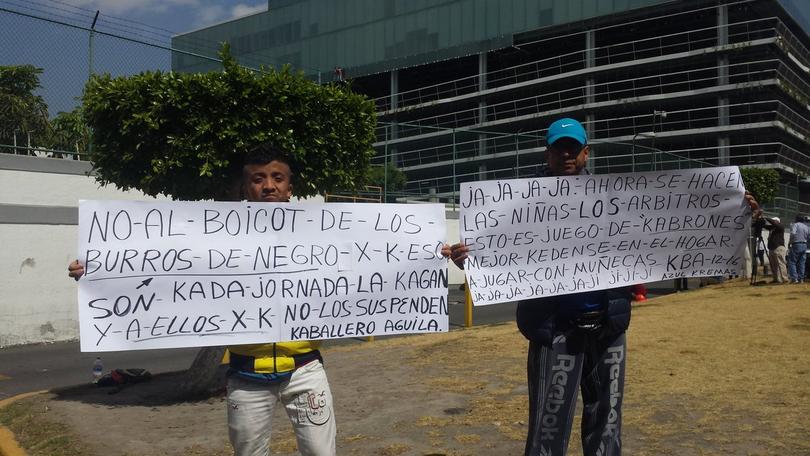 NO-AL-BOICOT-DE-LOS-
BURROS-DE-NEGRO-X-K-ESO
SON-KADA-JORNADA-LA-KAGAN
Y-A-ELLOS-X-K-NO-LOS-SUSPENDEN
KABALLERO AGUILA.
JA-JA-JA-JA-AHORA-SE-HACEN
LAS-NIÑAS-LOS-ARBITROS-
ESTO-ES-JUEGO-DE-KABRONES
MEJOR-KEDENSE-EN-EL-HOGAR-
A-JUGAR-CON-MUÑECAS KBA-12-16
JA-JA-JA-JA-JA-JI JI-JI-JI AZUL KREMAS
Reebok
Reebok